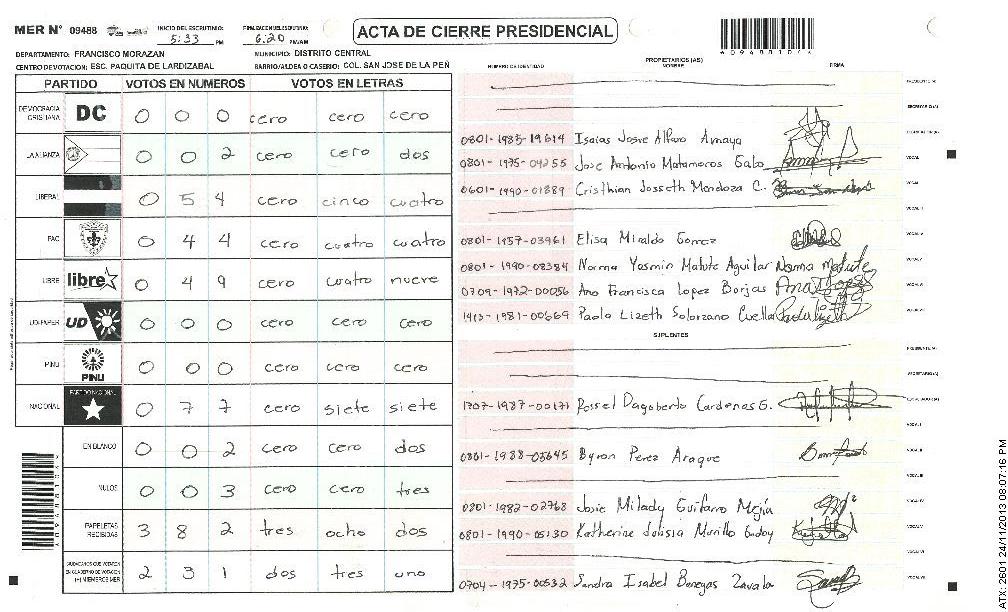 MER N° 09488
INICIO DEL ESCRUTINIO: 5:33 PM
FINALIZACION ESCRUTINIO: 6:20 PM/AM
ACTA DE CIERRE PRESIDENCIAL
DEPARTAMENTO: FRANCISCO MORAZAN
MUNICIPIO: DISTRITO CENTRAL
CENTRO DE VOTACION: ESC. PAQUITA DE LARDIZABAL
BARRIO/ALDEA O CASERIO: COL. SAN JOSE DE LA PEÑ
PARTIDO VOTOS EN NUMEROS VOTOS EN LETRAS
DEMOCRACIA CRISTIANA DC 0 0 0 cero cero cero
LA ALIANZA 0 0 2 cero cero dos
LIBERAL 0 5 4 cero cinco cuatro
PAC 0 4 4 cero cuatro cuatro
LIBRE libre 0 4 9 cero cuatro nueve
UD/FAPER UD 0 0 0 cero cero cero
PINU PINU 0 0 0 cero cero cero
NACIONAL PARTIDO NACIONAL 0 7 7 cero siete siete
EN BLANCO 0 0 2 cero cero dos
NULOS 0 0 3 cero cero tres
PAPELETAS RECIBIDAS 3 8 2 tres ocho dos
CIUDADANOS QUE VOTARON EN CUADERNO DE VOTACION (+) MIEMBROS MER 2 3 1 dos tres uno
PROPIETARIOS (AS)
NUMERO DE IDENTIDAD NOMBRE FIRMA
PRESIDENTE (A)
SECRETARIO (A)
0801-1985-19614 Isaias Josue Alfaro Amaya
0801-1975-04255 Jose Antonio Matamoros Galo VOCAL
0601-1990-01889 Cristhian Josseth Mendoza C. VOCAL
0801-1957-03961 Elisa Miralda Gomez
0801-1990-08384 Norma Yasmin Matute Aguilar Norma Matute
0709-1972-00056 Ana Francisca Lopez Borjas
1413-1981-00669 Paola Lizeth Solorzano Cuella
SUPLENTES
PRESIDENTE (A)
SECRETARIO (A)
1707-1987-00171 Rossel Dagoberto Cardenas G.
0801-1988-05645 Byron Perez Araque
0801-1982-02768 Josie Milady Guifarro Mejía
0801-1990-05130 Katherine Julissia Murillo Godoy
0704-1975-00532 Sandra Isabel Banegas Zavala
ATX: 2601 24/11/2013 08:07:16 PM